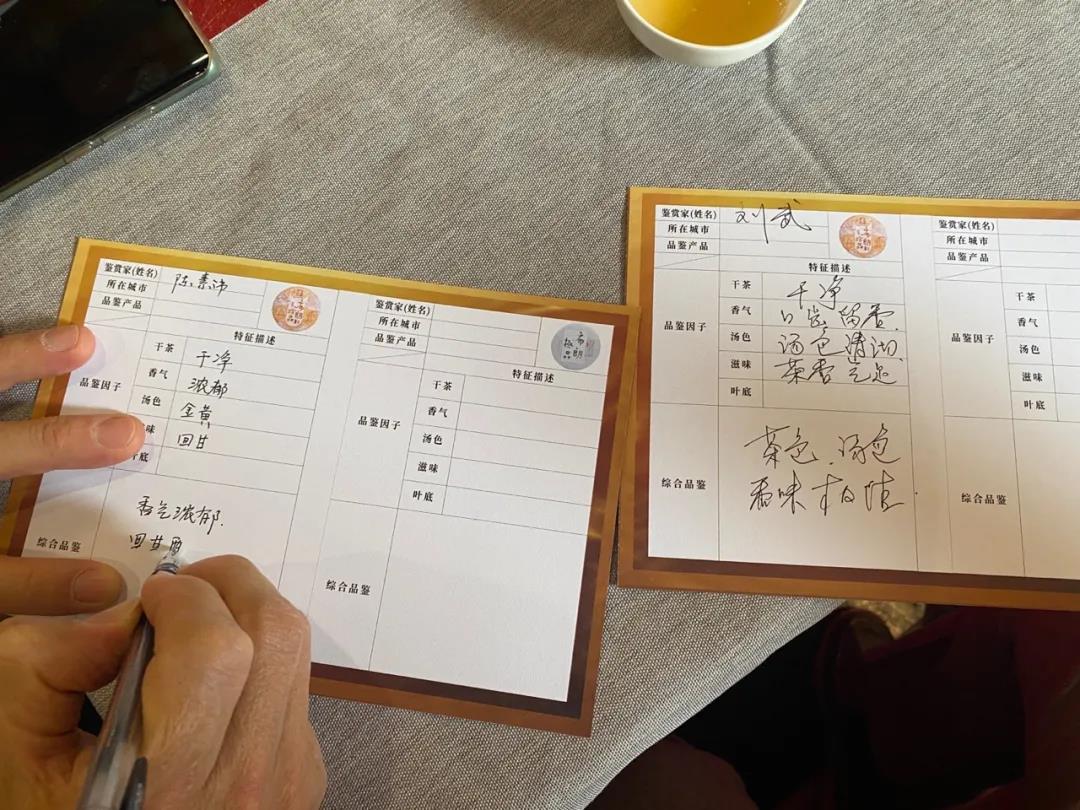 鉴赏家(姓名)
所在城市
品鉴产品
特征描述
品鉴因子
干茶 干净
香气 浓郁
汤色 金黄
味 回甘
叶底
综合品鉴
香气浓郁.
回甘
鉴赏家(姓名)
所在城市
品鉴产品
特征描述
品鉴因子
干茶
香气
汤色
滋味
叶底
综合品鉴
鉴赏家(姓名) 刘武
所在城市
品鉴产品
特征描述
品鉴因子
干茶 干净
香气 口感留香.
汤色 汤色清澈.
滋味 茶香气足
叶底
综合品鉴
茶色.汤色
香味
鉴赏家(姓名)
所在城市
品鉴产品
品鉴因子
干茶
香气
汤色
滋味
叶底
综合品鉴